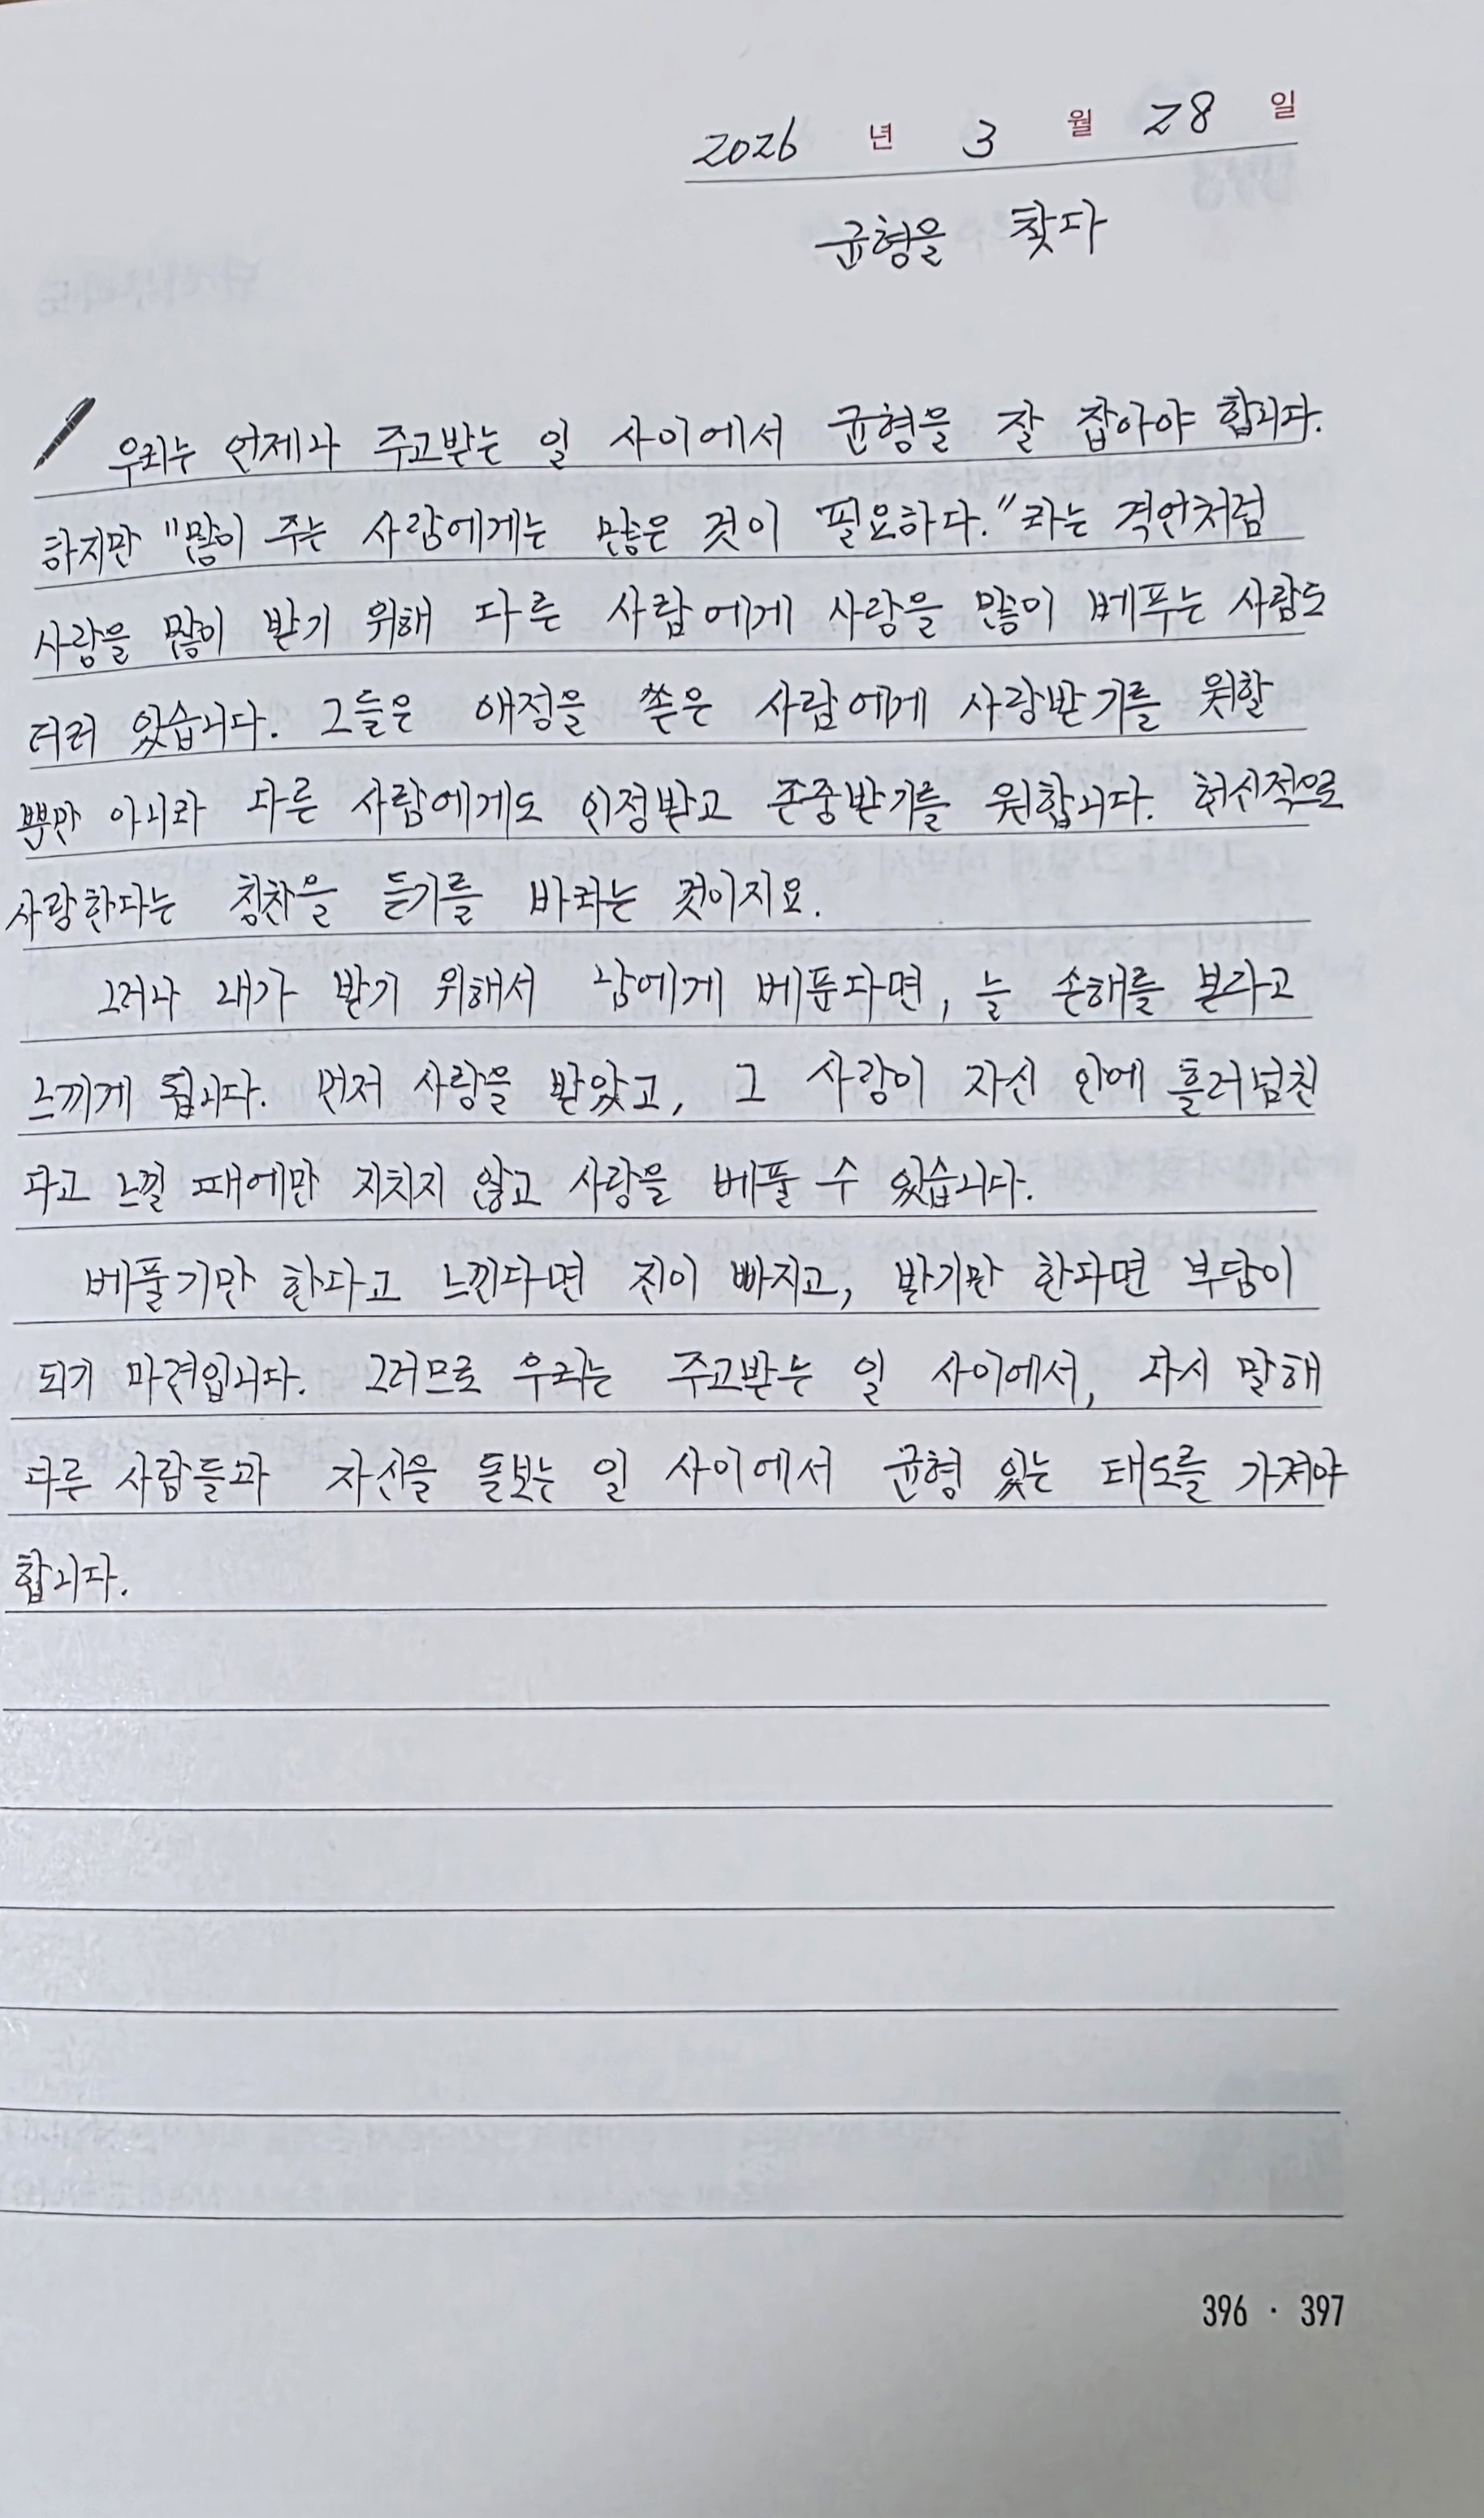 2026 년 3 월 28 일
균형을 찾다
우리는 언제나 주고받는 일 사이에서 균형을 잘 잡아야 합니다.
하지만 "많이 주는 사람에게는 많은 것이 필요하다."라는 격언처럼
사랑을 많이 받기 위해 다른 사람에게 사랑을 많이 베푸는 사람도
더러 있습니다. 그들은 애정을 쏟은 사람에게 사랑받기를 원할
뿐만 아니라 다른 사람에게도 인정받고 존중받기를 원합니다. 헌신적으로
사랑한다는 칭찬을 듣기를 바라는 것이지요.
그러나 내가 받기 위해서 남에게 베푼다면, 늘 손해를 본다고
느끼게 됩니다. 먼저 사랑을 받았고, 그 사랑이 자신 안에 흘러넘친
다고 느낄 때에만 지치지 않고 사랑을 베풀 수 있습니다.
베풀기만 한다고 느낀다면 진이 빠지고, 받기만 한다면 부담이
되기 마련입니다. 그러므로 우리는 주고받는 일 사이에서, 다시 말해
다른 사람들과 자신을 돌보는 일 사이에서 균형 있는 태도를 가져야
합니다.
396 · 397